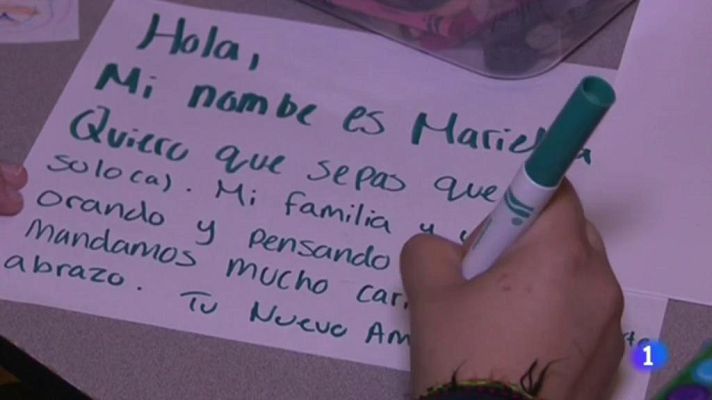 Hola,
Mi nombe es Mariela
Quiero que sepas que
solo(a). Mi familia y
orando y pensando
mandamos mucho
abrazo. Tu Nuevo
1